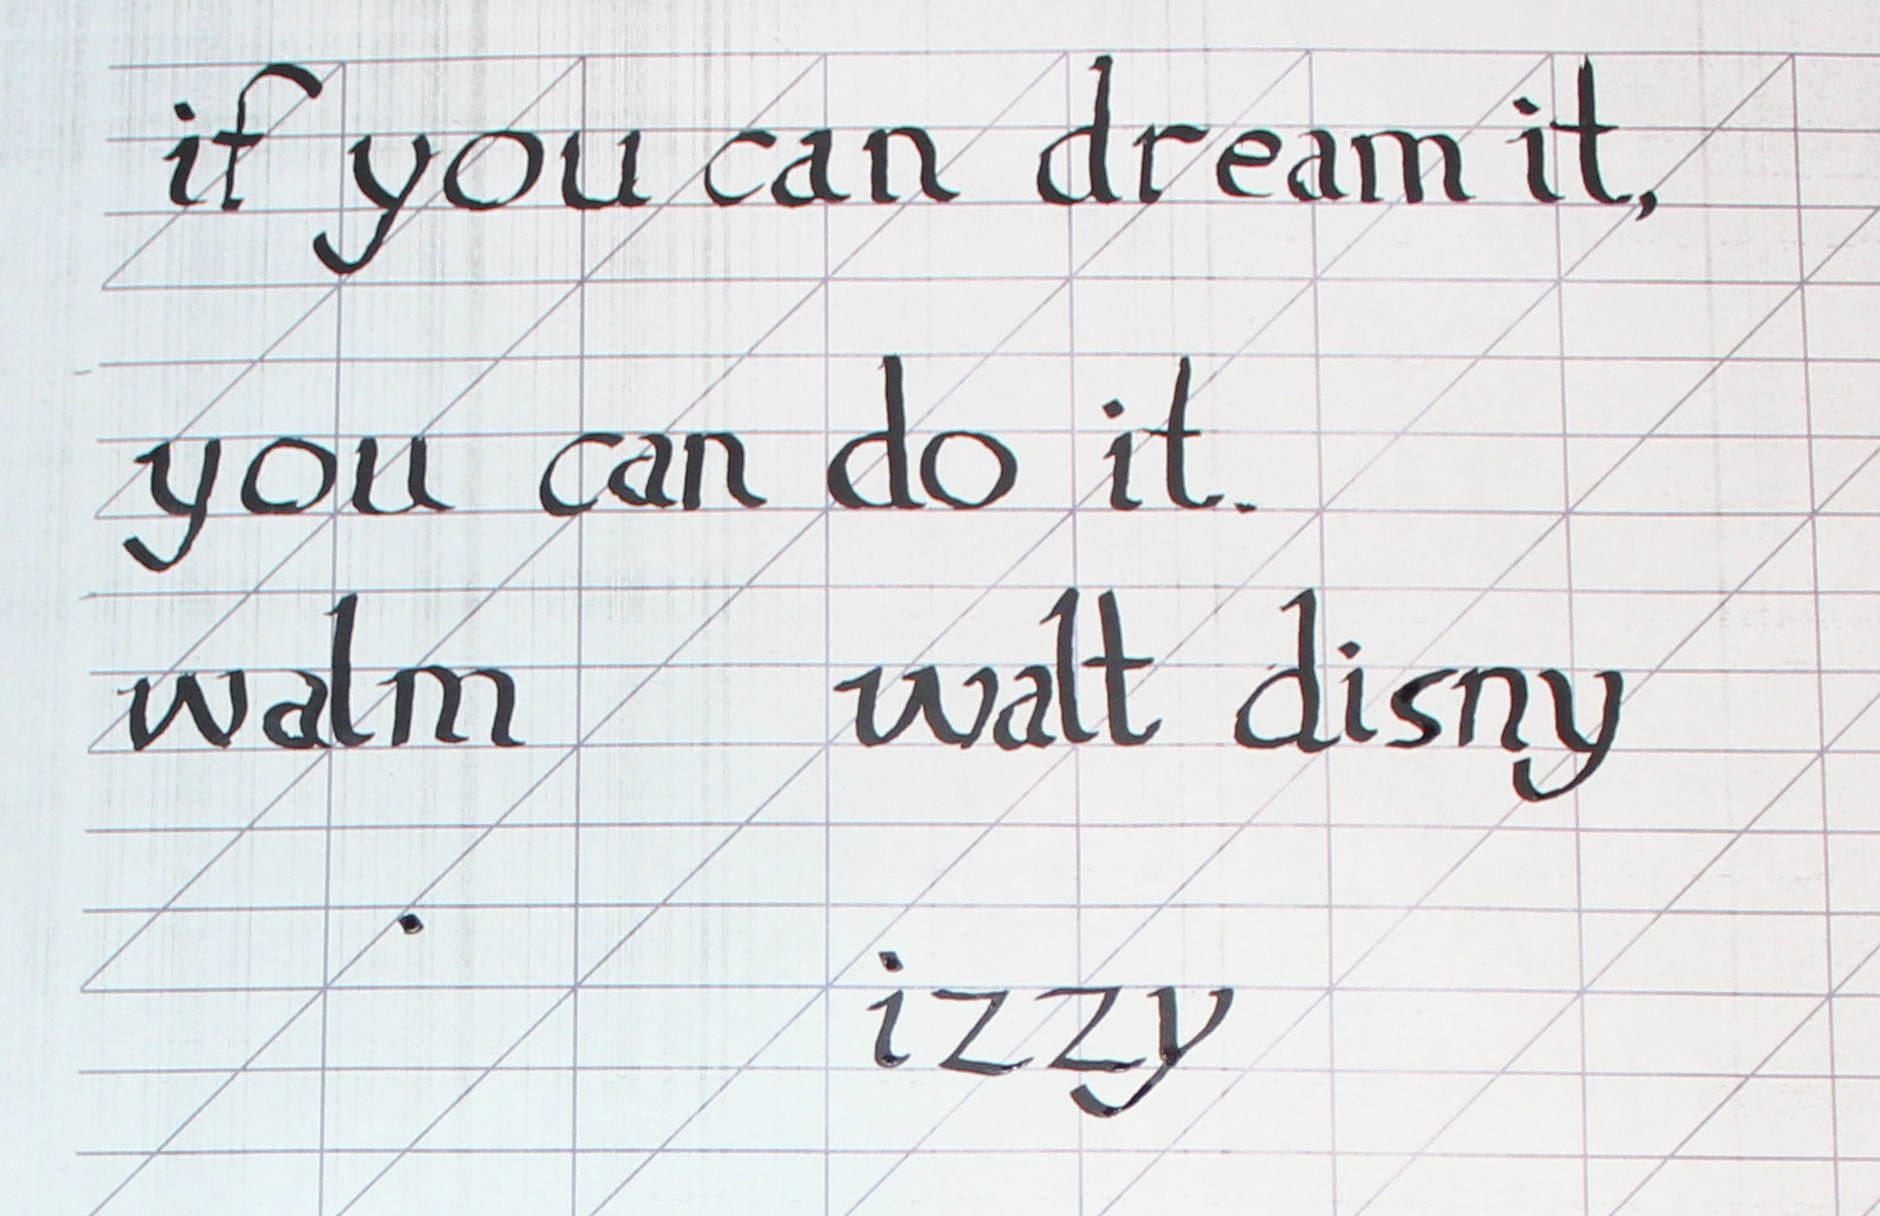 if you can dream it,
you can do it.
walm walt disny
izzy